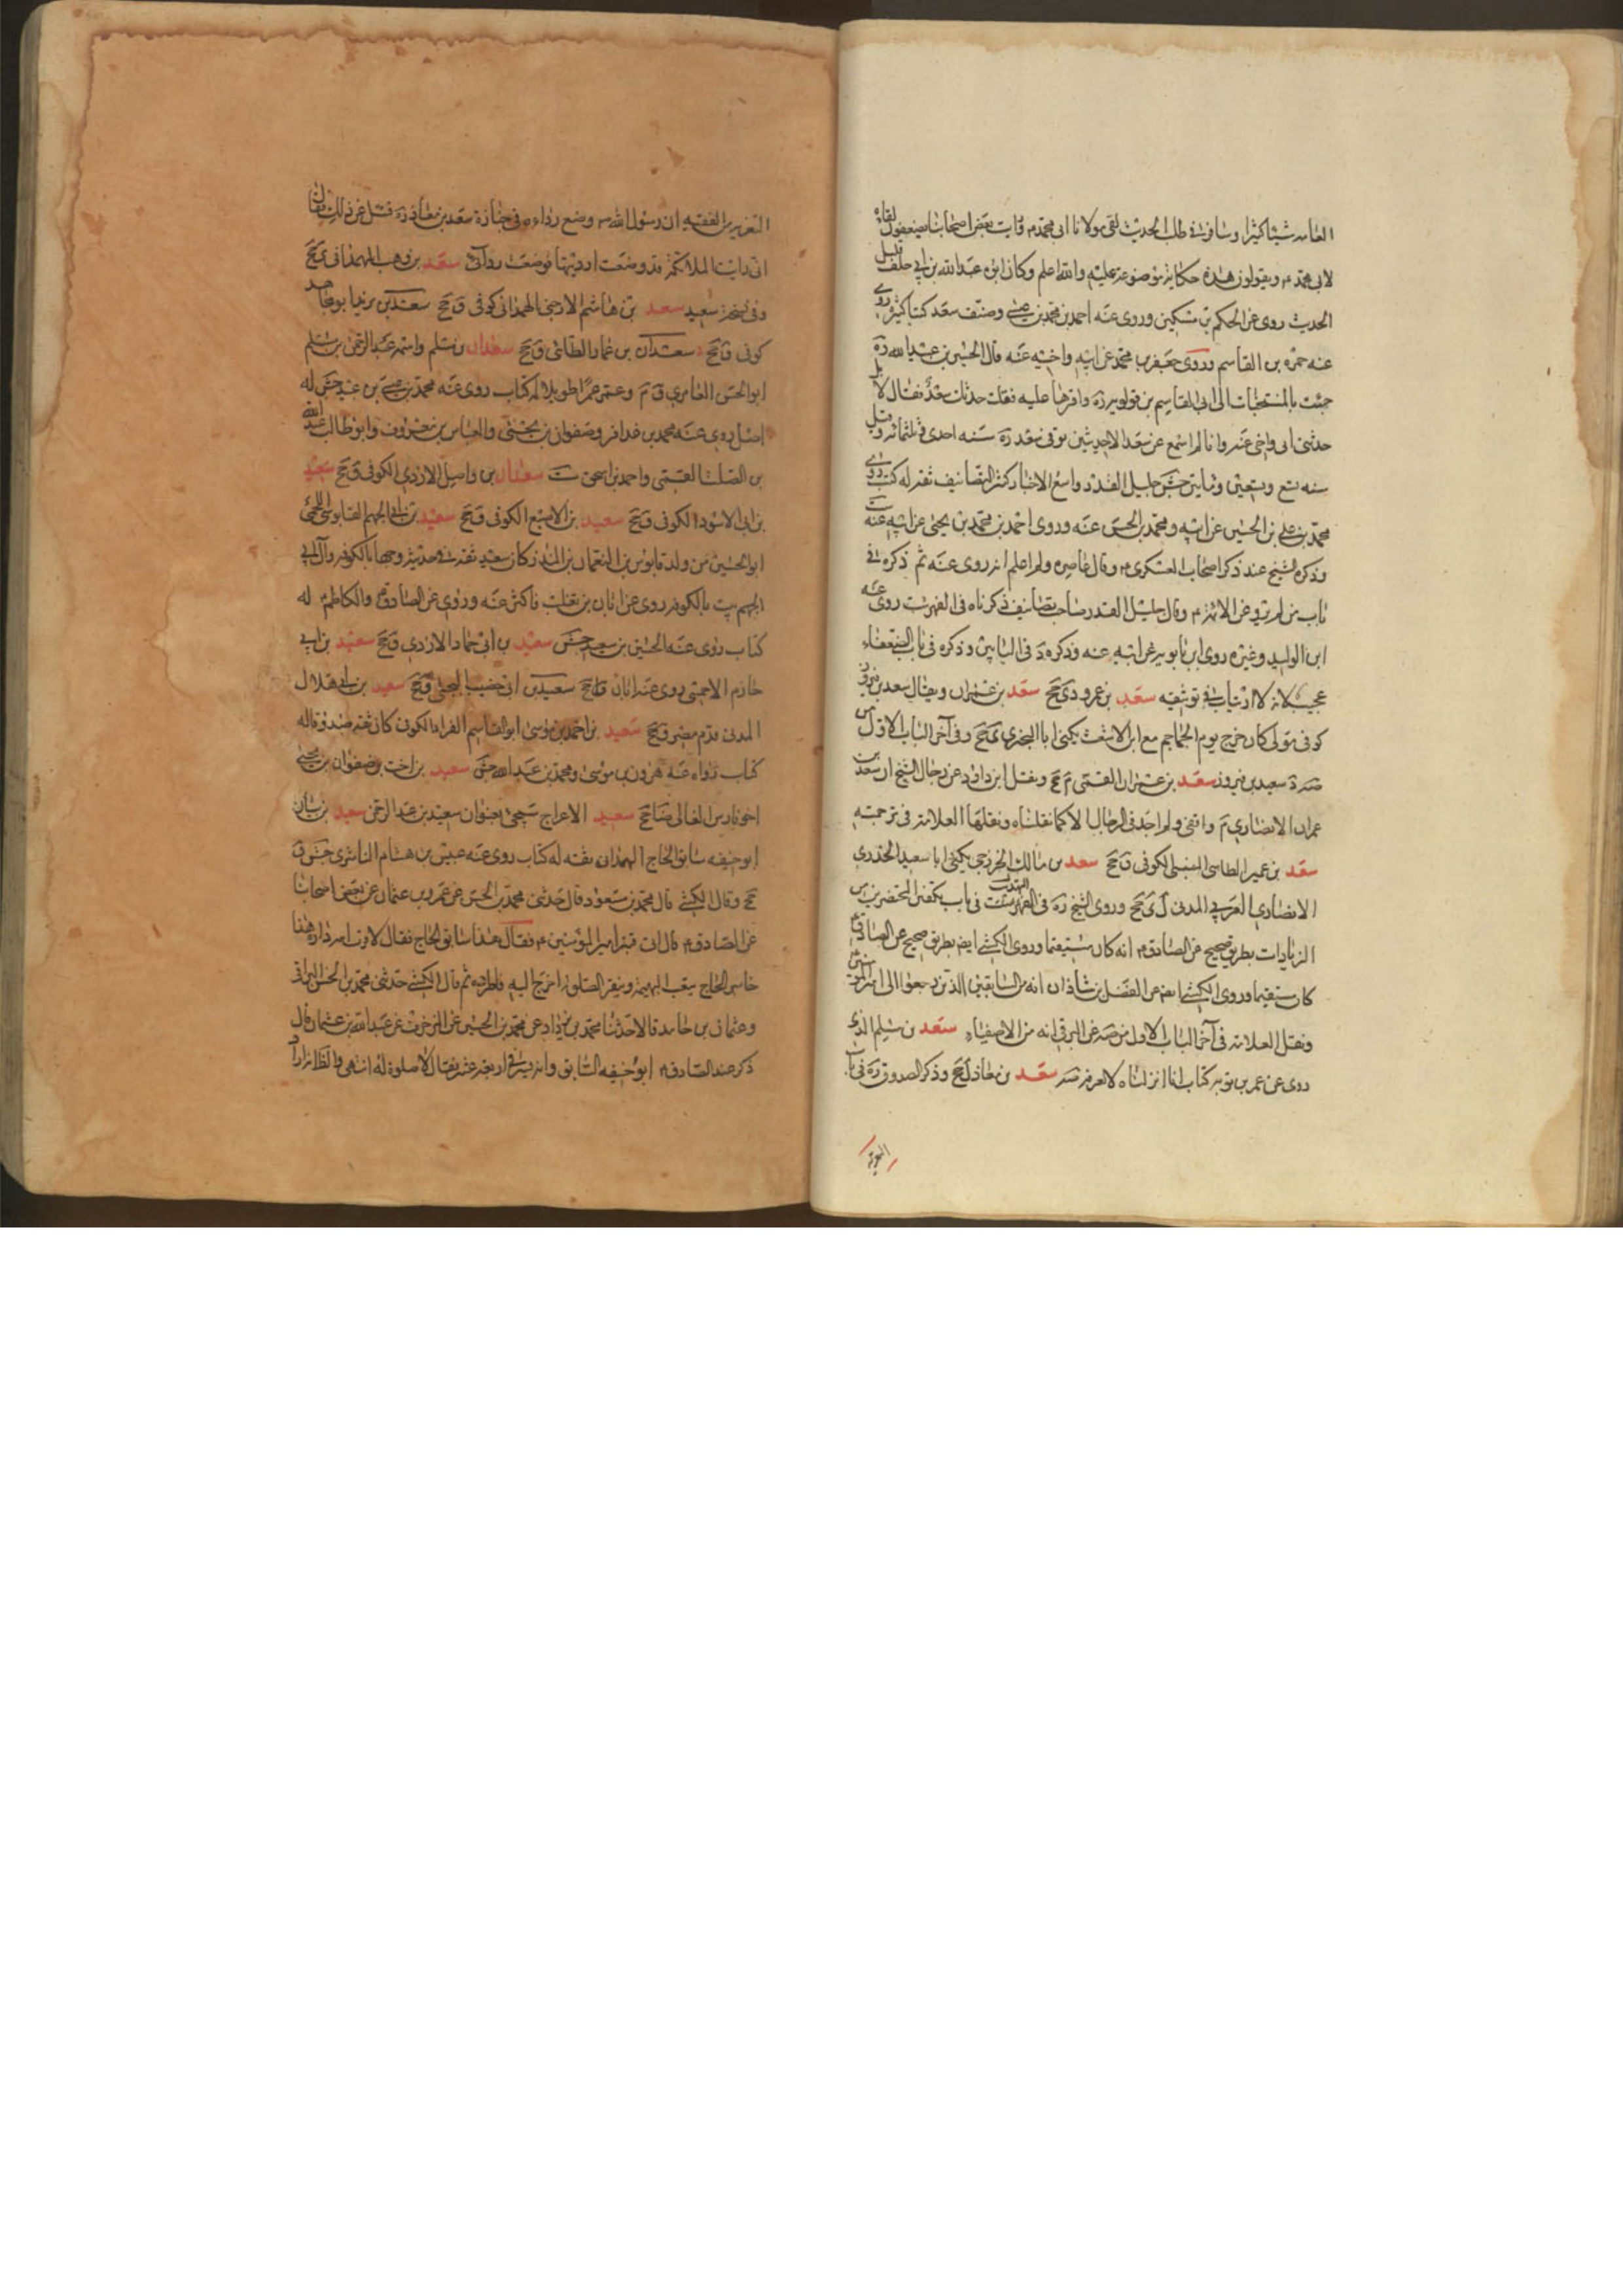 العامه شيئا كثيرا وسافر في طلب الحديث لقي مولانا ابي محمد م ورايت بعض اصحابنا يضعفون لقاه
لابي محمد م ويقولون هذه حكاية موضوعة عليه والله اعلم وكان ابوه عبدالله بن ابي خلف قليل
الحديث روي عن الحكم بن مسكين وروي عنه احمد بن محمد بن عيسى وصنف سعد كتبا كثيرة روي
عنه حمزة بن القاسم وروي جعفر بن محمد عن ابيه واخيه عنه قال الحسين بن عبيدالله ره
جئت بالمنتخبات الى ابي القاسم بن قولويه ره واقرءها عليه فقلت حدثك سعد فقال لا بل
حدثني ابي واخي عنه وانا لم اسمع عن سعد الا حديثين توفي سعد ره سنه احدى وثلثمائه وقيل
سنه تسع وتسعين ومائتين جش جليل القدر واسع الاخبار كثير التصانيف ثقه له كتب روي
محمد بن علي بن الحسين عن ابيه ومحمد بن الحسن عنه وروي احمد بن محمد بن يحيى عن ابيه عنه ست
وذكره الشيخ عند ذكر اصحاب العسكري م وقال عاصره ولم اعلم انه روى عنه ثم ذكره في
باب من لم يرو عن الائمة م وقال جليل القدر صاحب تصانيف ذكرناه في الفهرست روى عنه
ابن الوليد وغيره روى ابن بابويه عن ابيه عنه وذكره د في البابين وذكره في باب الضعفاء
عجيب لانه لا ارتياب في توثيقه سعد بن عمرو دي جخ سعد بن عمران ويقال سعد بن فيروز
كوفي مولى كان خرج يوم الجماجم مع ابن الاشعث يكنى ابا البختري ي جخ وفي آخر الباب الاول من
صه سعيد بن فيروز سعد بن عمران القمي م جخ ونقل ابن داود عن رجال الشيخ ان سعد بن
عمران الانصاري م واقفي ولم اجد في الرجال الا كما نقلناه ونقلها العلامة في ترجمته
سعد بن عمير الطائي السنبسي الكوفي ق جخ سعد بن مالك الخزرجي يكنى ابا سعيد الخدري
الانصاري العربي المدني ل ي جخ وروى الشيخ ره في التهذيب في باب تلقين المحتضرين من
الزيادات بطريق صحيح عن الصادق م انه كان مستقيما وروى الكشي ايضا بطريق صحيح عن الصادق م
كان مستقيما وروى الكشي ايضا عن الفضل بن شاذان انه من السابقين الذين رجعوا الى امير المؤمنين
ونقل العلامه في آخر الباب الاول من صه عن البرقي انه من الاصفياء سعد بن مسلم الذي
روى عن عمر بن توبه كتاب انا انزلناه لا يعرف صه سعد بن معاذ ل جخ وذكر الصدوق ره في باب
التعزية
التعزية من الفقيه ان رسول الله ص وضع رداءه في جنازة سعد بن معاذ ره فسئل عن ذلك فقال
اني رايت الملائكة قد وضعت ارديتها فوضعت ردائي سعد بن وهب الهمداني ي جخ
وفي نسخة سعيد سعد بن هاشم الارحبي الهمداني كوفي ق جخ سعد بن يزيد ابو مجاهد
كوفي ق جخ سعدان بن عمار الطائي ق جخ سعدان بن مسلم واسمه عبدالرحمن بن مسلم
ابو الحسن العامري ق م وعمر عمرا طويلا له كتاب روى عنه محمد بن عيسى بن عبيد جش له
اصل روى عنه محمد بن عذافر وصفوان بن يحيى والعباس بن معروف وابو طالب عبد الله
بن الصلت القمي واحمد بن اسحق ست سعدان بن واصل الازدي الكوفي ق جخ سعيد
بن ابي الاسود الكوفي ق جخ سعيد بن الاصبغ الكوفي ق جخ سعيد بن ابي الجهم القابوسي اللخمي
ابو الحسين من ولد قابوس بن النعمان بن المنذر كان سعيد ثقة في حديثه وجها بالكوفه وآل ابي
الجهم بيت بالكوفه روى عن ابان بن تغلب فاكثر عنه وروى عن الصادق والكاظم م له
كتاب روى عنه الحسين بن سعيد جش سعيد بن ابي حماد الازدي ق جخ سعيد بن ابي
خازم الاحمسي روى عنه ابان ق جخ سعيد بن ابي خضيب البجلي ق جخ سعيد بن ابي هلال
المدني قدم مصر ق جخ سعيد بن احمد بن موسى ابو القاسم الغراد الكوفي كان ثقه صدوقا له
كتاب رواه عنه هرون بن موسى ومحمد بن عبدالله جش سعيد بن اخت صفوان بن يحيى
اخو فارس الغالي ضا جخ سعيد الاعرج سيجئ بعنوان سعيد بن عبدالرحمن سعيد بن بيان
ابو حنيفه سابق الحاج الهمداني ثقه له كتاب روى عنه عبيس بن هشام الناشري جش ق
جخ وقال الكشي قال محمد بن مسعود قال حدثني محمد بن الحسن عن عمرو بن عثمان عن بعض اصحابنا
عن الصادق م قال اتى قنبر امير المؤمنين م فقال هذا سابق الحاج فقال لا قرب الله داره هذا
خاسر الحاج يتعب البهيمة وينقر الصلوة اخرج اليه فاطرده ثم قال الكشي حدثني محمد بن الحسن البراثي
وعثمان بن حامد قالا حدثنا محمد بن يزداد عن محمد بن الحسين عن المزخرف عن عبدالله بن عثمان قال
ذكر عند الصادق م ابو حنيفه السابق وانه يسير في اربعة عشر فقال لا صلوة له انتهى والظاهر